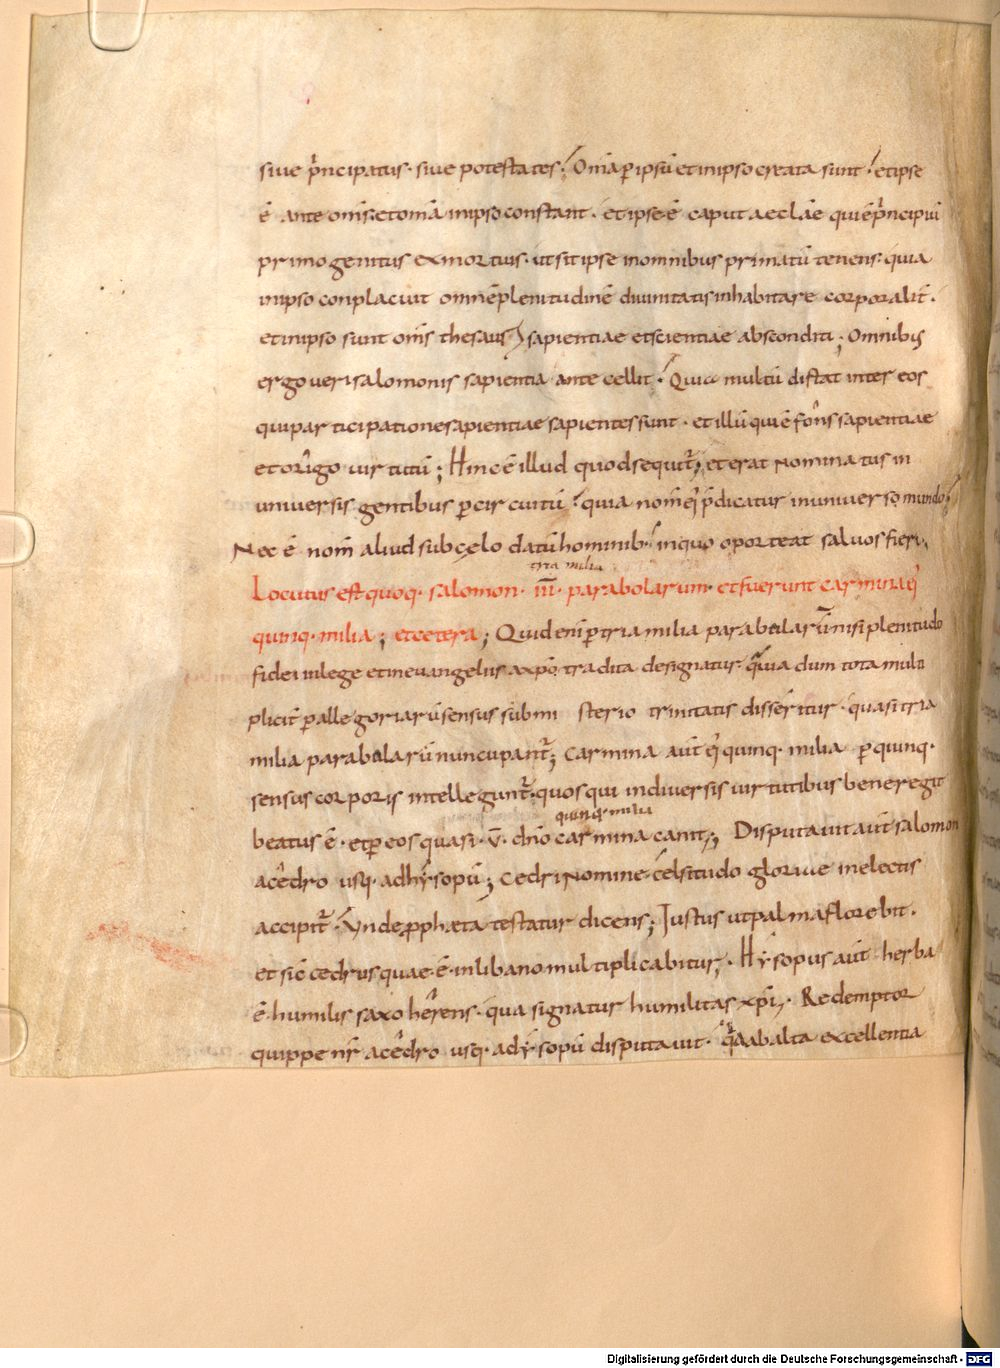 siue p̄ncipatus· siue potestates; Om̄a ꝑ ipsū et in ipso creata sunt; et ipse
ē ante om̄s· et om̄a in ipso constant· et ipse ē caput aeclae qui ē p̄ncipiū
primogenitus ex mortuis· ut sit ipse in omnibus primatū tenens· quia
in ipso conplacuit omnē plenitudinē diuinitatis inhabitare corporalit̄·
et in ipso sunt om̄s thesauri sapientiae et scientiae absconditi; Omnibus
ergo ueri salomonis sapientia antecellit· Quia multū distat inter eos
qui participatione sapientiae sapientes sunt· et illū qui ē fons sapientiae
et origo uirtutū; Hinc ē illud quod sequit̄; et erat nominatus in
uniuersis gentibus ꝑ circuitū· quia nom̄ ei p̄dicatur in uniuerso mundo·
Nec ē nom̄ aliud sub cęlo datū hominib· in quo oporteat saluos fieri;
tria milia
Locutus est quoq· salomon· III· parabolarum· et fuerunt carmina ei
quinq· milia; et cetera; Quid eni ꝑ tria milia parabolarū nisi plenitudo
fidei in lege et in euangeliis a xp̄o tradita designatur· quia dum tota multi
plicit̄ ꝑ allegoriarū sensus sub mi sterio trinitatis disseritur· quasi tria
milia parabolarū nuncupant̄; Carmina aut̄ ei quinq· milia ꝑ quinq·
sensus corporis intellegunt̄· quos qui in diuersis uirtutibus bene regit
quinq· milia
beatus ē· et ꝑ eos quasi· V· dn̄o carmina canit; Disputauit aut̄ salomon
a cedro usq· ad hysopū; Cedri nomine celsitudo gloriae in electis
accipit̄· Vnde ꝓpheta testatur dicens; Iustus ut palma florebit·
et sic̄ cedrus quae ē in libano multiplicabitur; Hysopus aut̄ herba
ē humilis saxo herens· qua signatur humilitas xp̄i· Redemptor
quippe nr̄ a cedro usq· ad ysopū disputauit· quia ab alta excellentia
Digitalisierung gefördert durch die Deutsche Forschungsgemeinschaft - DFG